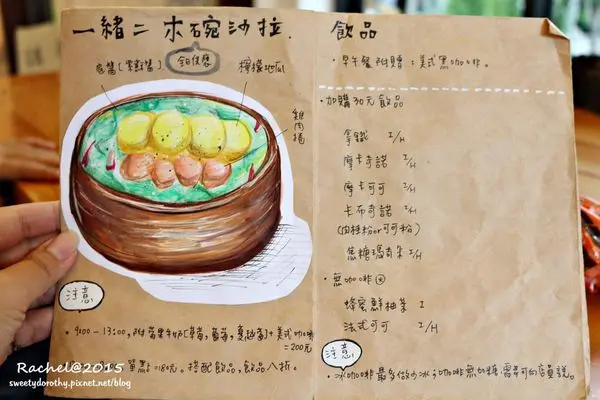 一緒二木碗沙拉.
今日促應
底醬(零點醬)
檸檬地瓜
雞肉捲
注意
9:00-13:00,附蘋果牛奶(草莓,藍莓,蔓越莓)+美式咖啡
=200元
單點=180元。搭配飲品,飲品八折。
飲品
早午餐附贈:美式黑咖啡。
加購30元飲品
拿鐵 I/H
摩卡奇諾 I/H
摩卡可可 I/H
卡布奇諾 I/H
(肉桂粉or可可粉)
焦糖瑪奇朵 I/H
無咖啡
蜂蜜鮮柚茶 I
法式可可 I/H
注意
冰咖啡最多做少冰,咖啡無加糖,需要可向店員說。
Rachel@2015
sweetydorothy.pixnet.net/blog